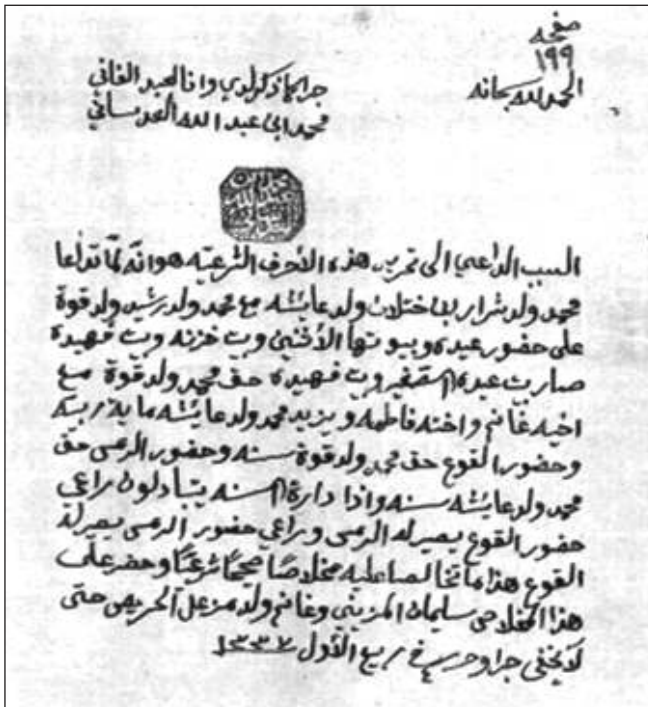 صفحه
١٩٩
الحمد لله سبحانه
جرا لما ذكر لدي وانا العبد الفاني
محمد ابن عبد الله العدساني
السبب الداعي الى تحرير هذه الأحرف الشرعيه هو انه لما تداعا
محمد ولد شرار بن ختلان ولد عايشه مع محمد ولد رشيد ولد قوة
على حضور عبده وبيوتها الأثنين وبيت خزنه وبيت فهيدة
صار بيت عبده الصغير وبيت فهيده حق محمد ولد قوة مع
اخيه غانم واخته فاطمه ويزيد محمد ولد عايشه ماية ربيه
وحضور القوع حق محمد ولد قوة سنه وحضور الرمى حق
محمد ولد عايشه سنه واذا دارة السنه يتبادلون راعي
حضور القوع يصير له الرمى وراعي حضور الرمى يصير له
القوع هذا ما تخالصا عليه مخلاصًا صحيحًا شرعيًا وحضر على
هذا المخلاص سليمان المزيني وغانم ولد مزعل الحريص حتى
لا يخفى جرا وحرر في ربيع الأول ١٣٣٧